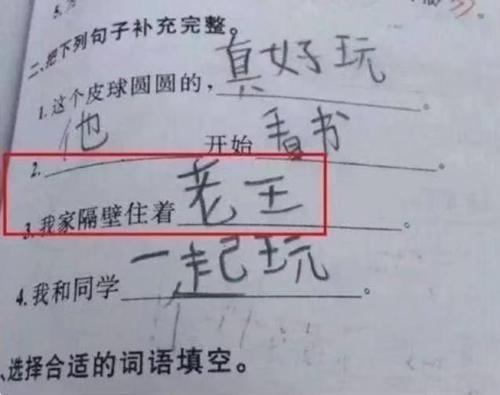 二、把下列句子补充完整。
1.这个皮球圆圆的，真好玩。
2.他开始看书。
3.我家隔壁住着老王
4.我和同学一起玩。
、选择合适的词语填空。